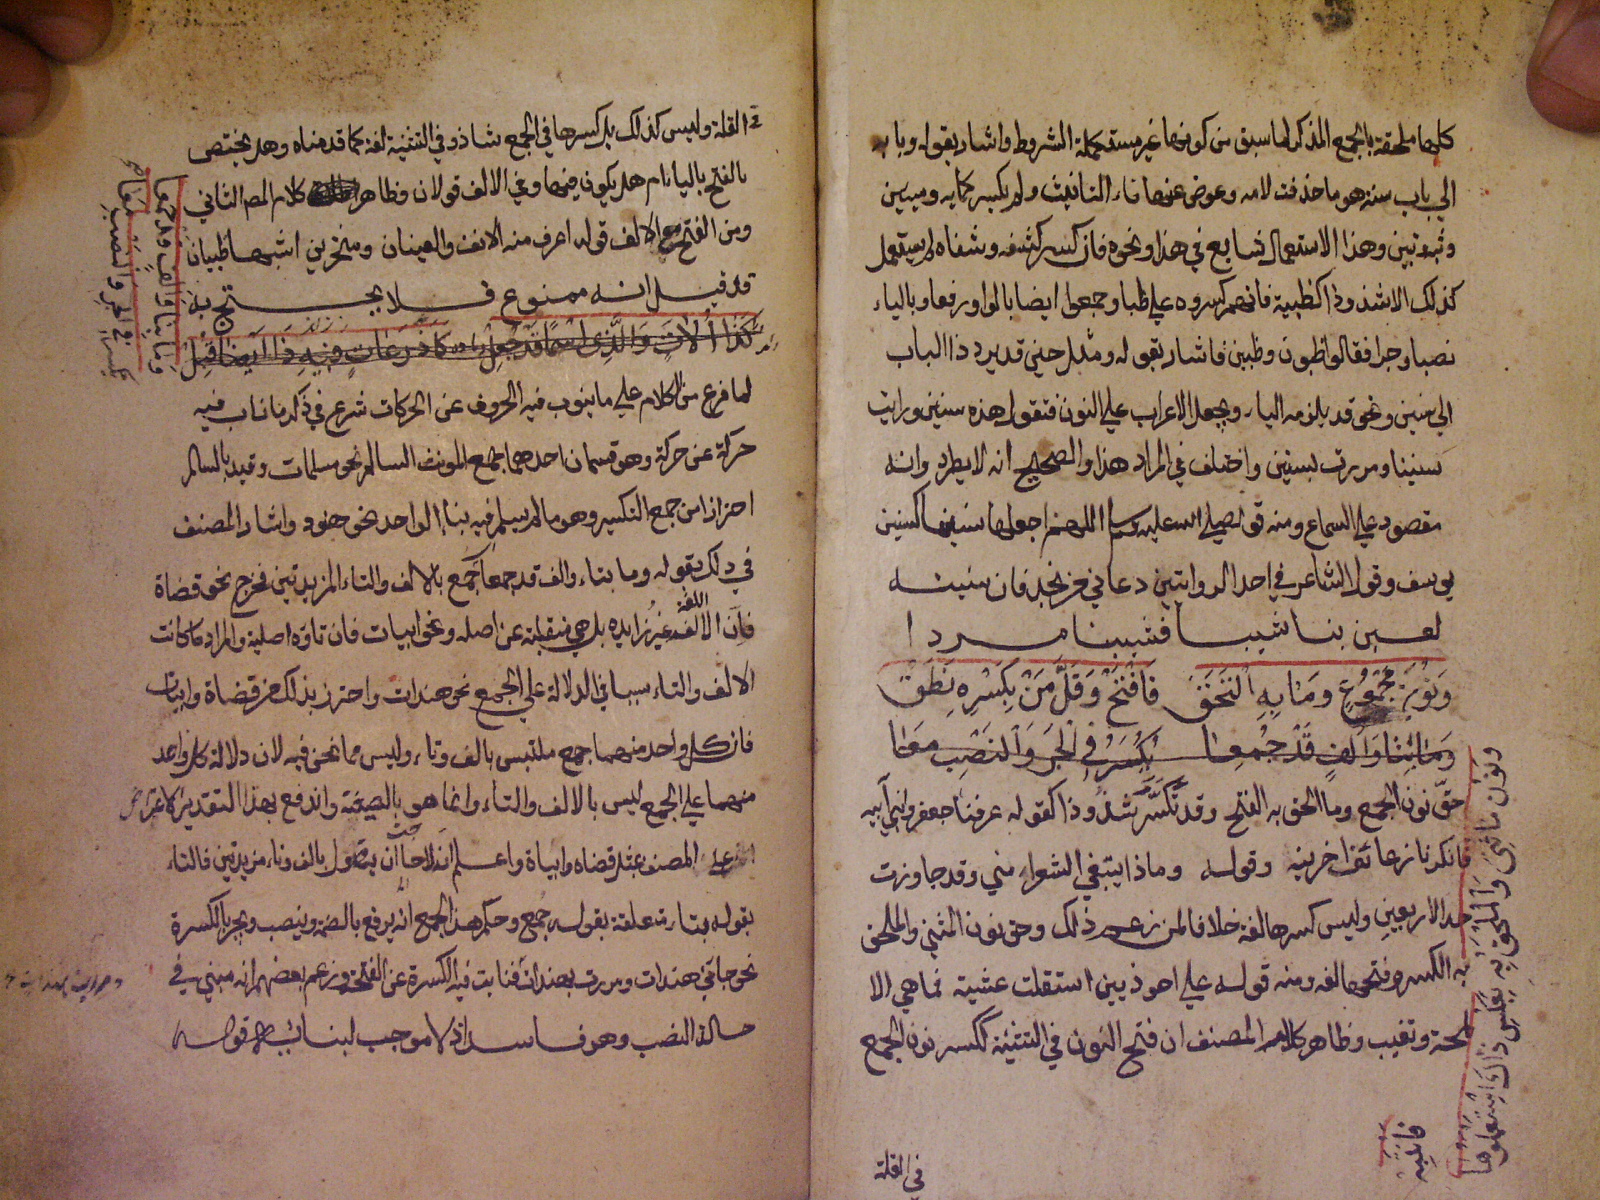 كلها ملحقة بالجمع المذكر لما سبق من كونها غير مستكملة الشروط واشار بقوله وباب
الي باب سنة هو ما حذفت لامه وعوض عنها تاء التانيث ولم يكسر كمايه وميين
وثبة ثبين وهذا الاستعمال شايع في هذا ونحوه فان كسر كشفه وشفاه لم يستعمل
كذلك الا شذوذا كظبية فانهم كسروه علي ظبا وجمعوا ايضا بالواو رفعا وبالياء
نصبا وجرا فقالوا ظبون وظبين فاشار بقوله ومثل حين قد يرد ذا الباب
الي سنين ونحوه قد يلزمه الياء ويجعل الاعراب علي النون فتقول هذه سنين ورايت
سنينا ومررت بسنين واختلف في اطراد هذا والصحيح انه لا يطرد وانه
مقصور علي السماع ومنه قوله صلي الله عليه وسلم اللهم اجعلها سنينا كسنين
يوسف وقول الشاعر في احدا الروايتين دعاني من نجد فان سنينه
لعبن بنا شيبا فشيبننا مردا
وَنُونَ مَجْمُوعٍ وَمَا بِهِ الْتَحَقَ فَافْتَحْ وَقَلَّ مَنْ بِكَسْرِهِ نَطَقْ
وَمَا بِتَا وَاَلِفٍ قَدْ جُمِعَا يُكْسَرُ فِي الْجَرِ وَالنَصْبِ مَعَا
حق نون الجمع وما الحق به الفتح وقد تكسر شذوذا كقوله عرفنا جعفر وبني ابيه
وانكرنا زعانف اخرينه وقوله وماذا يبتغي الشعراء مني وقد جاوزت
حد الاربعين وليس كسرها لغة خلافا لمن زعم ذلك وحق نون المثني والملحق
به الكسر وفتحها لغة ومنه قوله علي احوذيين استقلت عشية فما هي الا
لمحة وتغيب وظاهر كلام المصنف ان فتح النون في التثنية ككسر نون الجمع
ونون ما ثني والملحق به بعكس ذاك استعملوه
فانتبه
في القلة
في القلة وليس كذلك بل كسرها في الجمع شاذ وفي التثنية لغة كما قدمناه وهل يختص
بالفتح بالياء ام هل يكون فيها وفي الالف قولان وظاهر كلام المصم الثاني
ومن الفتح مع الالف قوله اعرف منه الانف والعينان ومنخرين اشبها ظبيان
قد قيل انه ممنوع فلا يحتج به
كَذَا اُلاتُ وَالَّذِي اسْمًا قَدْ جُعِلْ كَاَذْرِعَاتٍ فِيهِ ذَا اَيْضًا قُبِلْ
لما فرغ من الكلام علي ما ينوب فيه الحروف عن الحركات شرع في ذكر ما ناب فيه
حركة عن حركة وهو قسمان احدهما جمع المونث السالم نحو مسلمات وقيد بالسالم
احترازا من جمع التكسير وهو ما لم يسلم فيه بناء الواحد نحو هنود واشار المصنف
في ذلك بقوله وما بتاء والف قد جمعا جمع بالالف والتاء المزيدتين فخرج نحو قضاة
فان الالف غير زايده بل هي منقلبة عن اصله ونحو ابيات فان تاؤه اصلية والمراد ما كانت
الالف والتاء سببا في الدلالة علي الجمع نحو هندات واحترز بذلك من قضاة وابيات
فان كل واحد منهما جمع ملتبس بالف وتاء وليس مما نحن فيه لان دلالة كل واحد
منهما علي الجمع ليس بالالف والتاء وانما هو بالصيغة واندفع بهذا التقدير الاعتراض
علي المصنف بمثل قضاه وابياة واعلم انه لا حاجة ان يقول بالف وتاء مزيدتين فالتاء
بقوله بتا متعلقة بقوله جمع وحكم هذا الجمع انه يرفع بالضمة وينصب ويجر بالكسرة
نحو جاتني هندات ومررت بهندات فنابت فيه الكسرة عن الفتحة وزعم بعضهم انه مبني في
حالة النصب وهو فاسد اذ لا موجب لبنائه قوله
وما بتا والف قد جمعا
يكسر في الجر والنصب معا
ورايت هندات